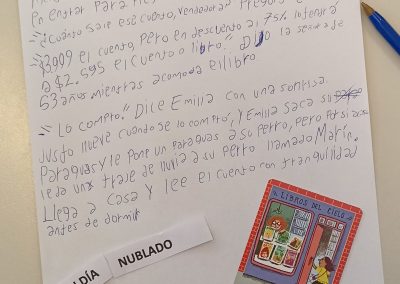 en entrar para
"¿Cuánto sale ese cuento, vendedora?" Pregunta
"$3.999 el cuento, pero en descuento al 75%
a $2.595 el cuento o libro." Dijo la señora de
63 años mientras acomoda el libro.
"Lo compro." Dice Emilia con una sonrisa.
Justo llueve cuando se lo compró, y Emilia saca su
Paraguas y le pone un Paraguas a su perro, pero por si acaso
le da un traje de lluvia a su perro llamado Marín.
Llega a casa y lee el cuento con tranquilidad
antes de dormir
LIBROS DEL CIELO
DÍA
NUBLADO